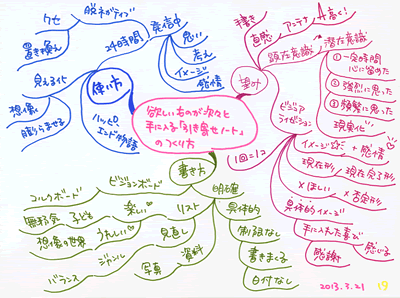 欲しいものが次々と
手に入る「引き寄せノート」
のつくり方
使い方
24時間
発信中
思い
考え
イメージ
感情
脱ネガティブ
クセ
置き換え
見える化
想像
膨らませる
ハッピー
エンド物語
望み
顕在意識
直感
書き
アンテナ
高く!
潜在意識
①一定時間
心に留めた
②強烈に思った
③頻繁に思った
現実化
1回=1コ
ビジュア
ライゼーション
イメージ
+ 感情
現在形/現在完了形
×ほしい
×否定形
具体的イメージ
手に入れた喜び
感じる
感謝
書き方
明確
具体的
制限なし
書きまくる
日付なし
ビジョンボード
コルクボード
リスト
楽しい
子ども
無邪気
見直し
うれしい
想像の世界
資料
写真
ジャンル
バランス
2013.3.21
19